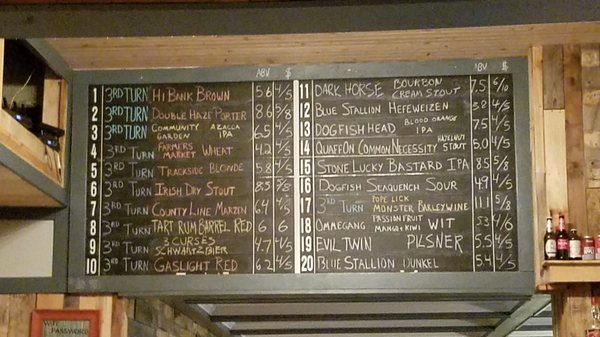 ABV $
1 3RD TURN HI BANK BROWN 5.6 4/5
2 3RD TURN DOUBLE HAZE PORTER 8.6 5/8
3 3RD TURN COMMUNITY GARDEN AZACCA IPA 6.5 4/5
4 3RD TURN FARMERS MARKET WHEAT 4.2 4/5
5 3RD TURN TRACKSIDE BLONDE 5.8 4/5
6 3RD TURN IRISH DRY STOUT 8.5 7/8
7 3RD TURN COUNTY LINE MARZEN 6.4 4/5
8 3RD TURN TART RUM BARREL RED 6 6
9 3RD TURN 3 CURSES SCHWARTZBIER 4.7 4/5
10 3RD TURN GASLIGHT RED 6.2 4/5
ABV $
11 DARK HORSE BOURBON CREAM STOUT 7.5 6/
12 BLUE STALLION HEFEWEIZEN 4/5
13 DOGFISH HEAD BLOOD ORANGE IPA 7.5 4/5
14 QUAFF ON COMMON NECESSITY HAZELNUT STOUT 5.0 4/5
15 STONE LUCKY BASTARD IPA 8.5 5/8
16 DOGFISH SEAQUENCH SOUR 4.9 4/5
17 3RD TURN POPE LICK MONSTER BARLEYWINE 11.1 5/8
18 OMMEGANG PASSION FRUIT MANGO + KIWI WIT 5.3 4/6
19 EVIL TWIN PILSNER 5.5 4/5
20 BLUE STALLION DUNKEL 5.4 4/5
WIFI
PASSWORD